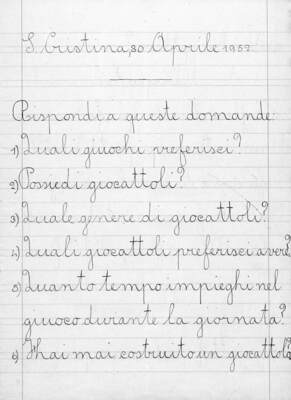 S. Cristina, 30 Aprile 1952
Rispondi a queste domande:
1) Quali giuochi preferisci?
2) Possiedi giocattoli?
3) Quale genere di giocattoli?
4) Quali giocattoli preferisci avere?
5) Quanto tempo impieghi nel
giuoco durante la giornata?
6) Hai mai costruito un giocattolo?